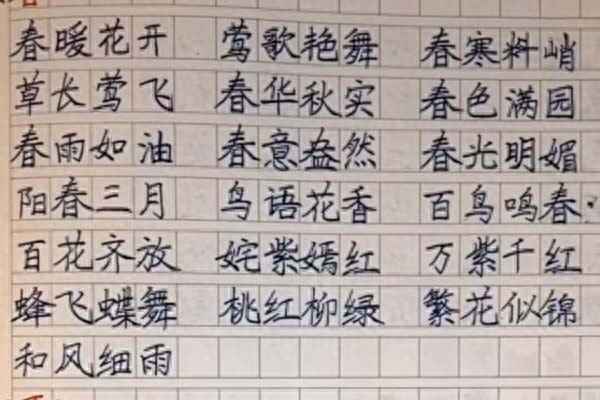 春暖花开 莺歌艳舞 春寒料峭
草长莺飞 春华秋实 春色满园
春雨如油 春意盎然 春光明媚
阳春三月 鸟语花香 百鸟鸣春.
百花齐放 姹紫嫣红 万紫千红
蜂飞蝶舞 桃红柳绿 繁花似锦
和风细雨